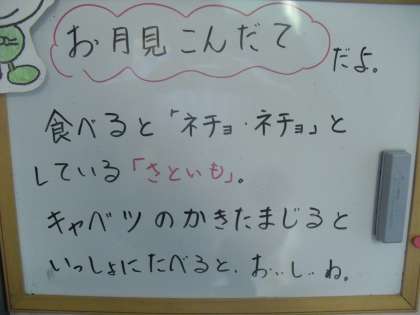 お月見こんだて
だよ。
食べると「ネチョ・ネチョ」と
している「さといも」。
キャベツのかきたまじると
いっしょにたべると、おいしいね。